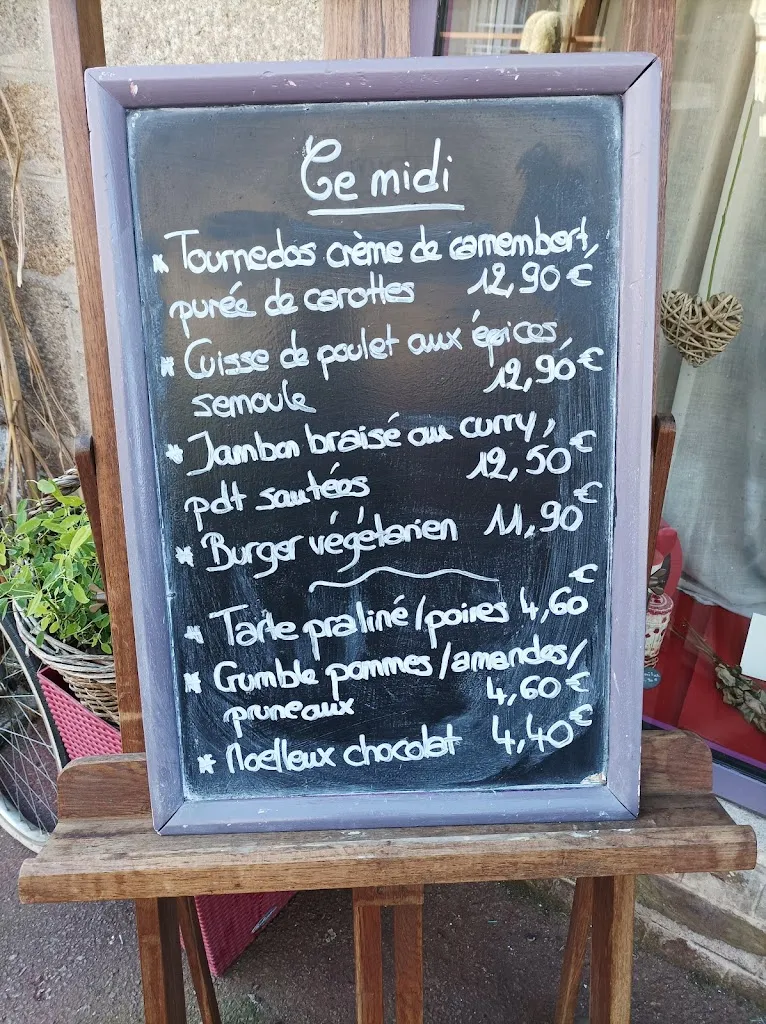 Ce midi
* Tournedos crème de camembert,
purée de carottes 12,90€
* Cuisse de poulet aux épices,
semoule 12,90€
* Jambon braisé au curry,
pdt sautées 12,50€
* Burger végétarien 11,90€
* Tarte praliné/poires 4,60€
* Crumble pommes/amandes/
pruneaux 4,60€
* Moelleux chocolat 4,40€